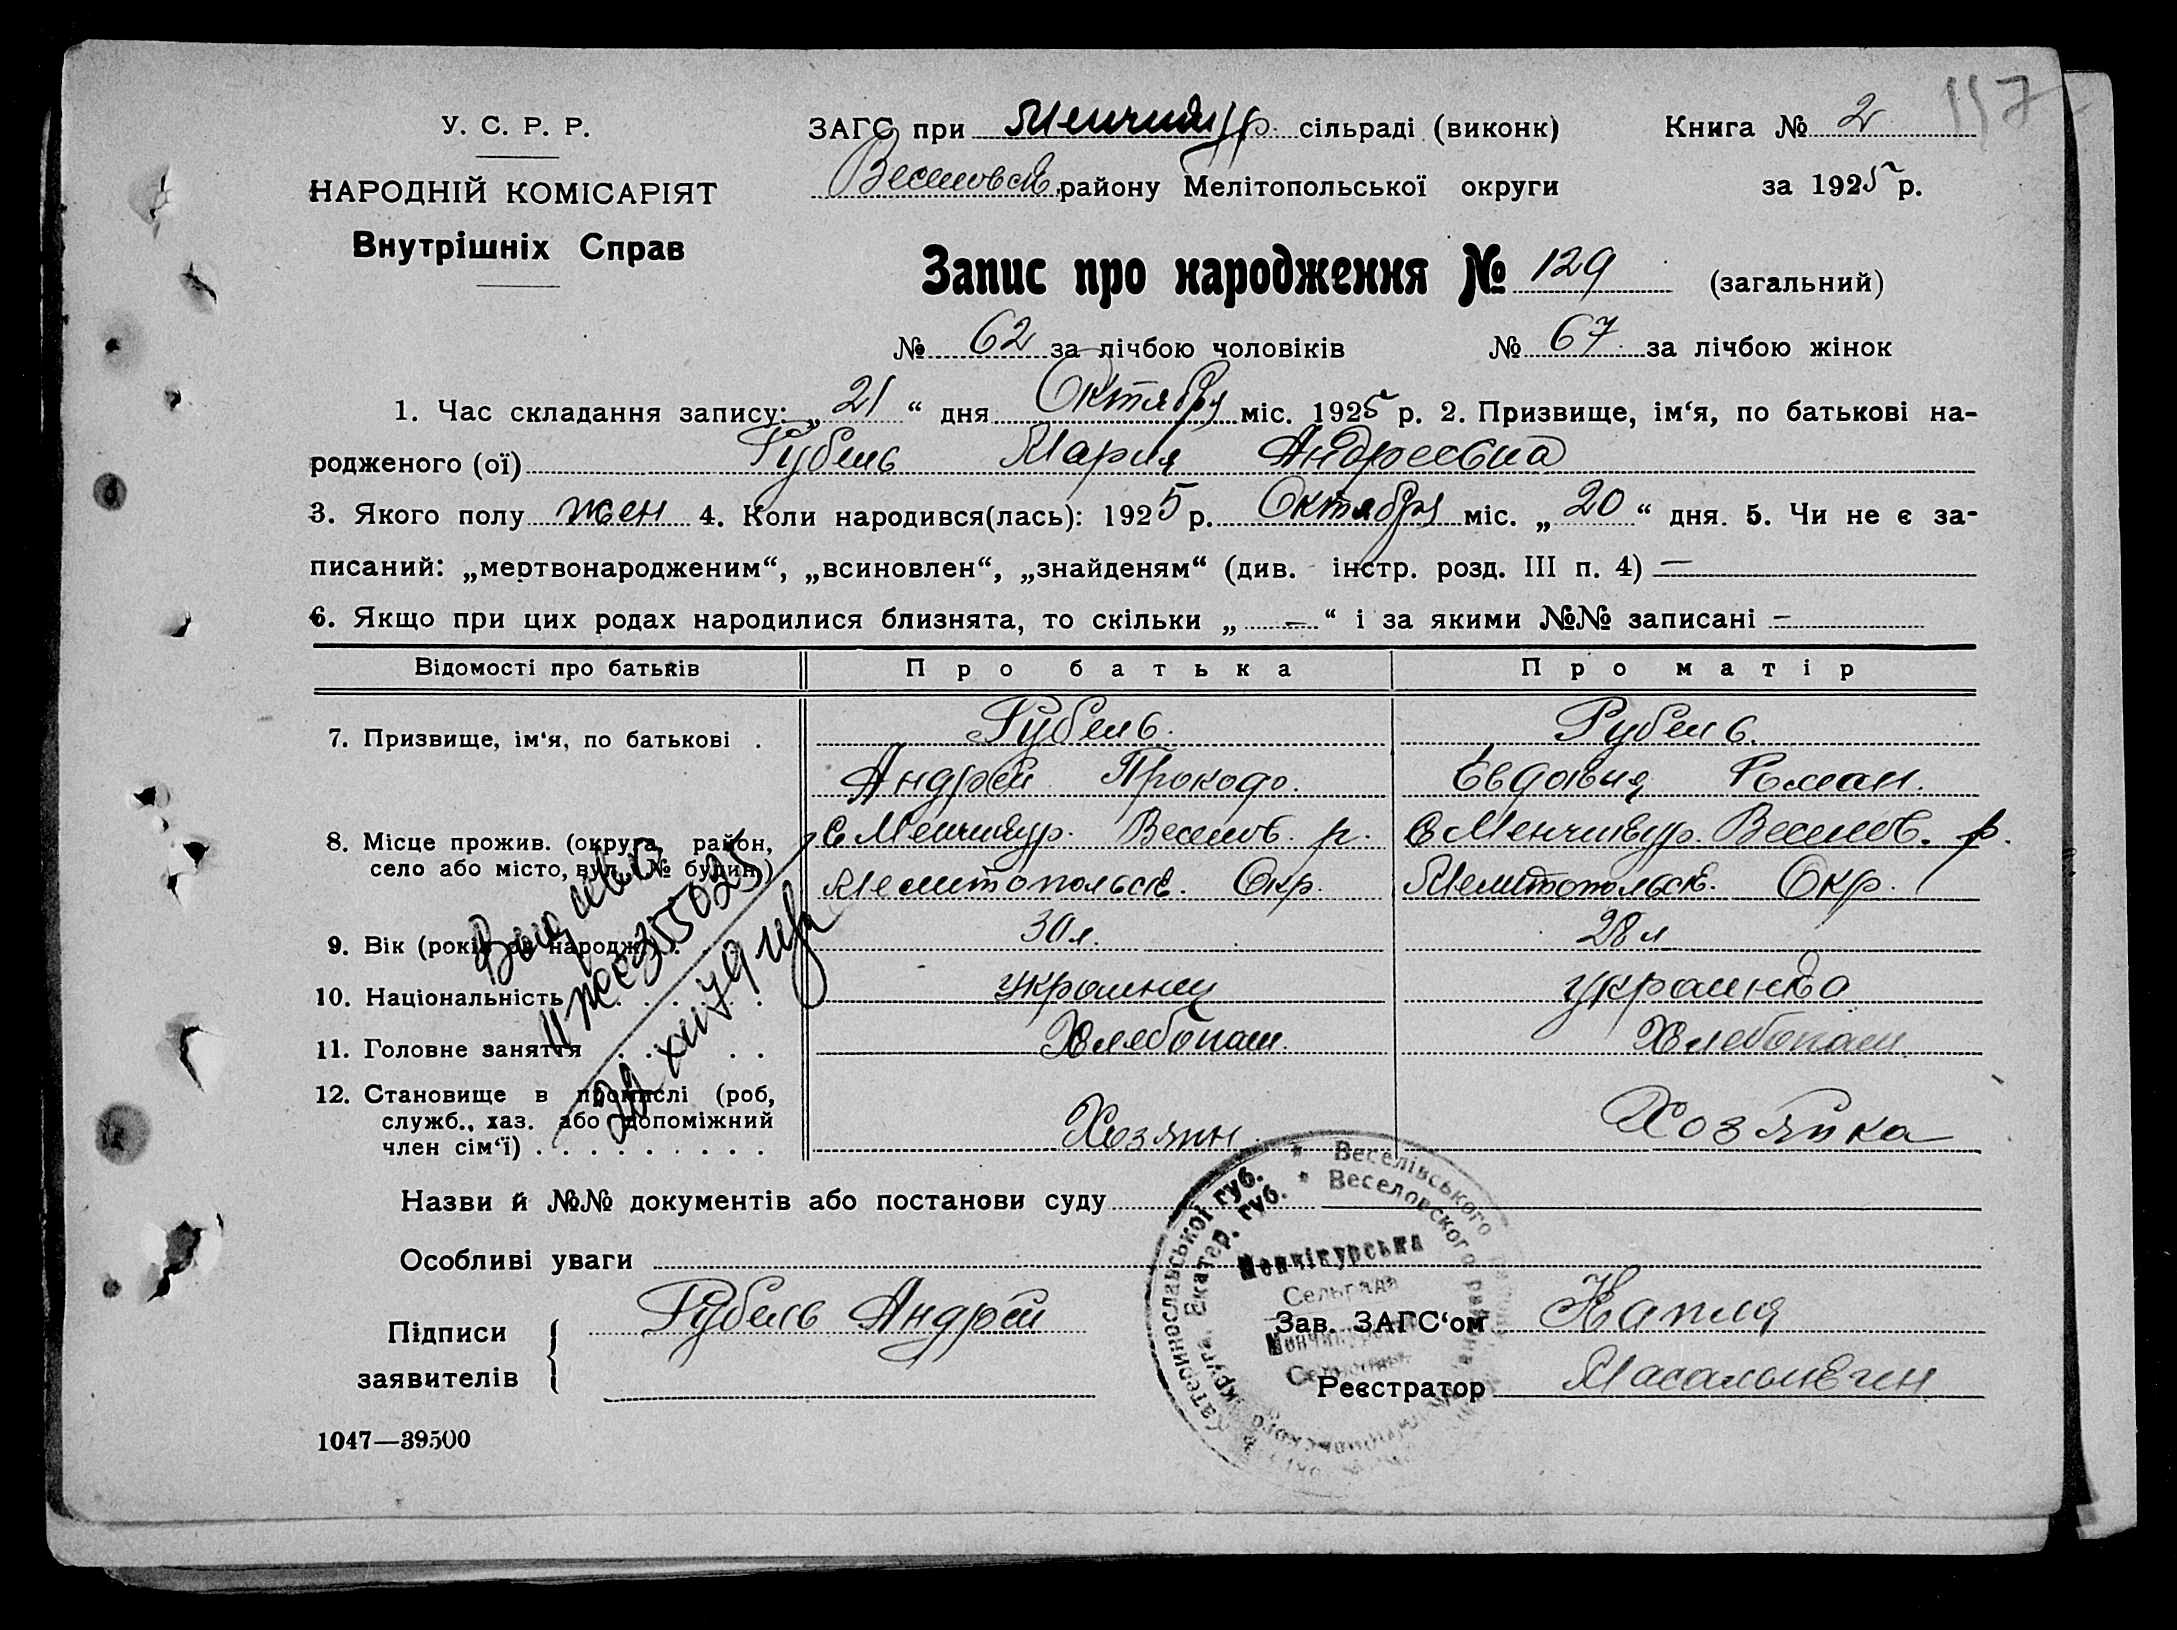 У. С. Р. Р.
НАРОДНІЙ КОМІСАРІЯТ
Внутрішніх Справ
ЗАГС при Менчикур. сільраді (виконк)
Веселовск. району Мелітопольської округи
Книга № 2
117
за 1925 р.
Запис про народження № 129 (загальний)
№ 62 за лічбою чоловіків № 67 за лічбою жінок
1. Час складання запису: „21“ дня Октября міс. 1925 р. 2. Призвище, ім‘я, по батькові на-
родженого (ої) Рубель Мария Андреевна
3. Якого полу жен 4. Коли народився(лась): 1925 р. Октября міс. „20“ дня. 5. Чи не є за-
писаний: „мертвонародженим“, „всиновлен“, „знайденям“ (див. інстр. розд. III п. 4) —
6. Якщо при цих родах народилися близнята, то скільки „ – “ і за якими №№ записані –
Відомості про батьків Про батька Про матір
7. Призвище, ім‘я, по батькові . Рубель. Рубель.
Андрей Прокофо. Евдокия Роман.
8. Місце прожив. (округа, район, с Менчикур. Веселов. р. с Менчикур. Веселов. р.
село або місто, вул. № будин.) Мелитопольск. Окр. Мелитопольск. Окр.
9. Вік (років од народж.) 30 л. 28 л
10. Національність украинец украинка
11. Головне заняття Хлебопаш. Хлебопаш.
12. Становище в промислі (роб,
служб., хаз. або допоміжний
член сім‘ї) Хозяин. Хозяйка
355025
Назви й №№ документів або постанови суду
Особливі уваги
Підписи
заявителів
Рубель Андрей
Зав. ЗАГС‘ом Капля
Реєстратор
1047—39500
Катеринославської губ. * Веселівського
Екатер. губ. * Веселовского района
Менчікурська
Сельрада